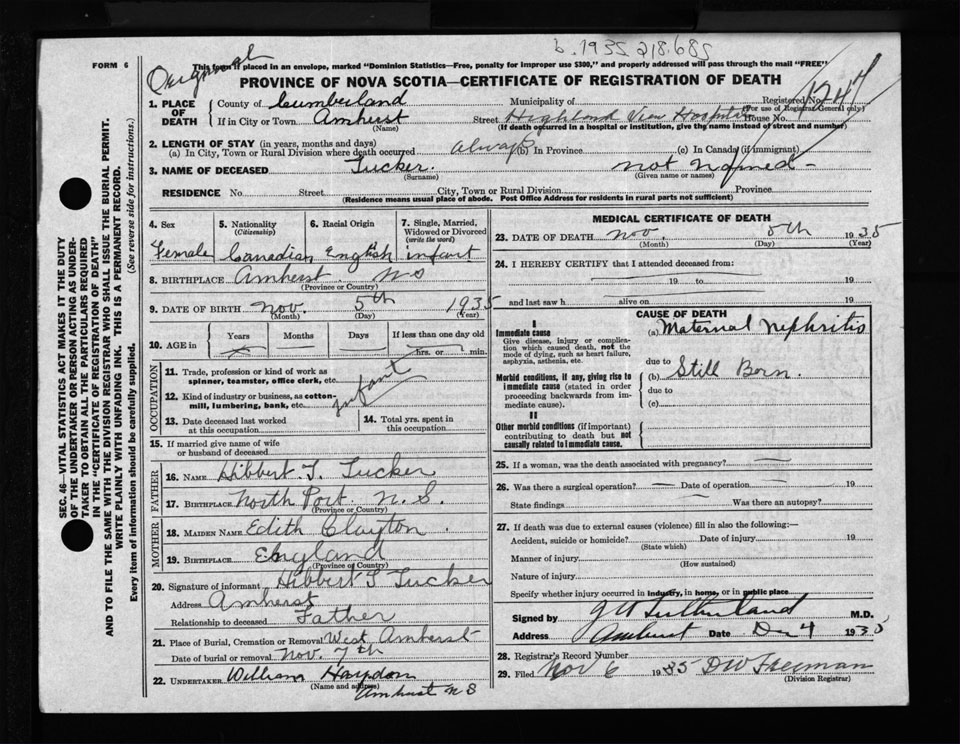 b. 1935 218.685
FORM 6
Original
This form if placed in an envelope, marked "Dominion Statistics—Free, penalty for improper use $300," and properly addressed will pass through the mail "FREE"
PROVINCE OF NOVA SCOTIA—CERTIFICATE OF REGISTRATION OF DEATH
1. PLACE OF DEATH
County of Cumberland Municipality of Registered No.
(For use of Registrar General only)
If in City or Town Amherst Street Highland View Hospital House No.
(Name) (If death occurred in a hospital or institution, give the name instead of street and number)
2. LENGTH OF STAY (in years, months and days)
(a) In City, Town or Rural Division where death occurred always (b) In Province (c) In Canada (if immigrant)
3. NAME OF DECEASED Tucker. not Named-
(Surname) (Given name or names)
RESIDENCE No. Street City, Town or Rural Division Province
(Residence means usual place of abode. Post Office Address for residents in rural parts not sufficient)
4. Sex 5. Nationality (Citizenship) 6. Racial Origin 7. Single, Married, Widowed or Divorced (write the word)
Female Canadian English infant
8. BIRTHPLACE Amherst NS
(Province or Country)
9. DATE OF BIRTH Nov. 5th 1935
(Month) (Day) (Year)
10. AGE in Years Months Days If less than one day old
hrs. or min.
OCCUPATION
11. Trade, profession or kind of work as
spinner, teamster, office clerk, etc.
12. Kind of industry or business, as cotton-
mill, lumbering, bank, etc. infant
13. Date deceased last worked
at this occupation
14. Total yrs. spent in
this occupation
15. If married give name of wife
or husband of deceased
FATHER
16. NAME Hibbert T. Tucker
17. BIRTHPLACE North Port. N.S.
(Province or Country)
MOTHER
18. MAIDEN NAME Edith Clayton
19. BIRTHPLACE England
(Province or Country)
20. Signature of informant Hibbert T Tucker
Address Amherst
Relationship to deceased Father
21. Place of Burial, Cremation or Removal West Amherst
Date of burial or removal Nov. 7th
22. UNDERTAKER William Haydon
(Name and address)
Amherst NS
MEDICAL CERTIFICATE OF DEATH
23. DATE OF DEATH Nov. 5th 1935
(Month) (Day) (Year)
24. I HEREBY CERTIFY that I attended deceased from:
19 to 19
and last saw h alive on 19
CAUSE OF DEATH
I
Immediate cause
Give disease, injury or complica-
tion which caused death, not the
mode of dying, such as heart failure,
asphyxia, asthenia, etc.
(a) Maternal Nephritis
due to
Morbid conditions, if any, giving rise to
immediate cause (stated in order
proceeding backwards from im-
mediate cause).
(b) Still Born.
due to
(c)
II
Other morbid conditions (if important)
contributing to death but not
causally related to immediate cause.
25. If a woman, was the death associated with pregnancy?
26. Was there a surgical operation? Date of operation 19
State findings Was there an autopsy?
27. If death was due to external causes (violence) fill in also the following:—
Accident, suicide or homicide? Date of injury 19
(State which)
Manner of injury
(How sustained)
Nature of injury
Specify whether injury occurred in industry, in home, or in public place
Signed by J W Sutherland M.D.
Address Amherst Date Dec 4 1935
28. Registrar's Record Number
29. Filed Nov 6 1935 D W Freeman
(Division Registrar)
SEC. 46—VITAL STATISTICS ACT MAKES IT THE DUTY
OF THE UNDERTAKER OR PERSON ACTING AS UNDER-
TAKER TO OBTAIN ALL THE PARTICULARS REQUIRED
IN THE "CERTIFICATE OF REGISTRATION OF DEATH"
AND TO FILE THE SAME WITH THE DIVISION REGISTRAR WHO SHALL ISSUE THE BURIAL PERMIT.
WRITE PLAINLY WITH UNFADING INK. THIS IS A PERMANENT RECORD.
Every item of information should be carefully supplied. (See reverse side for instructions.)